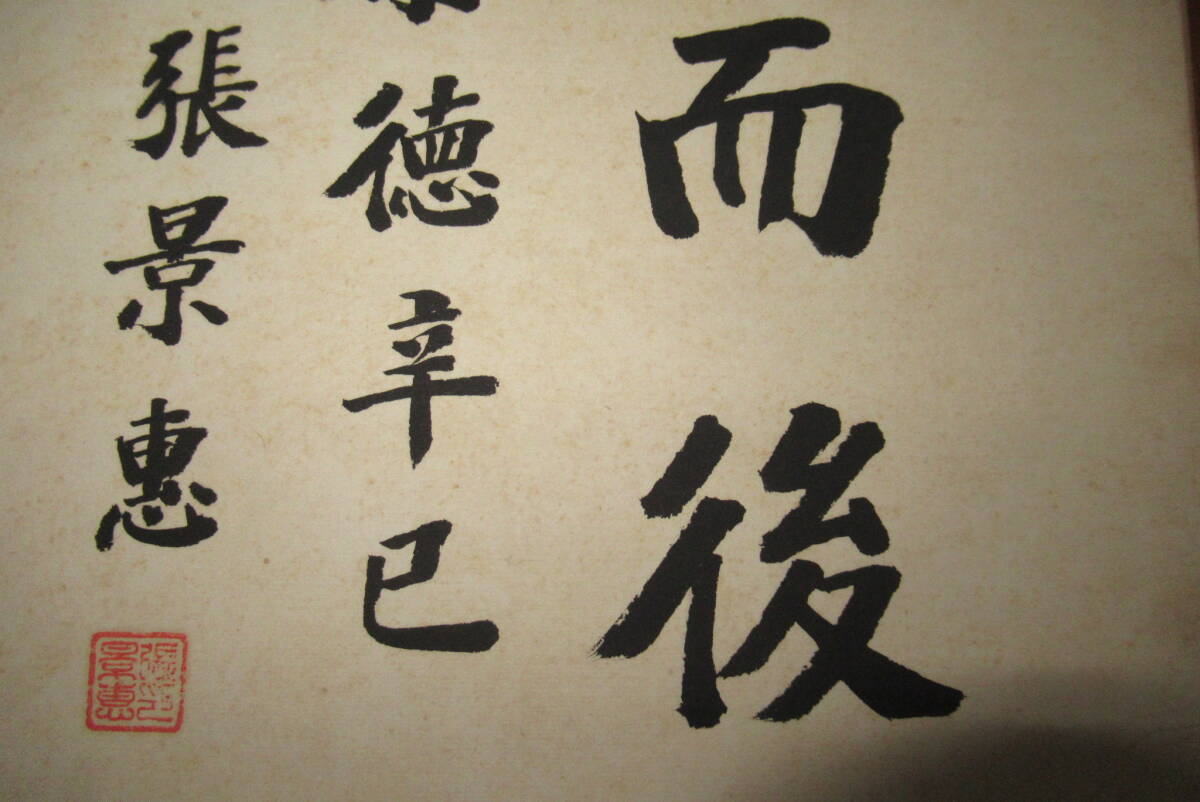 而後
德辛巳
張景惠
張景惠印